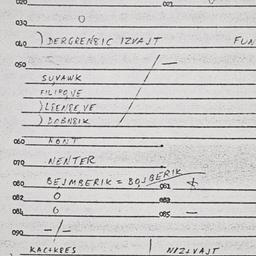 020 021
030 0
040 ) DERGRENSIC IZVAJT FUN
050 / —
SUVAWK
FILIPOVE
) LSENSE, VE
) DOBNSIK
060 KONT
070 NENTER
080 BEJMBERIK = BOJBERIK 081 +
082 0 083
084 0 085 —
090 -/-
KAC+KBES | NIZ+VAJT